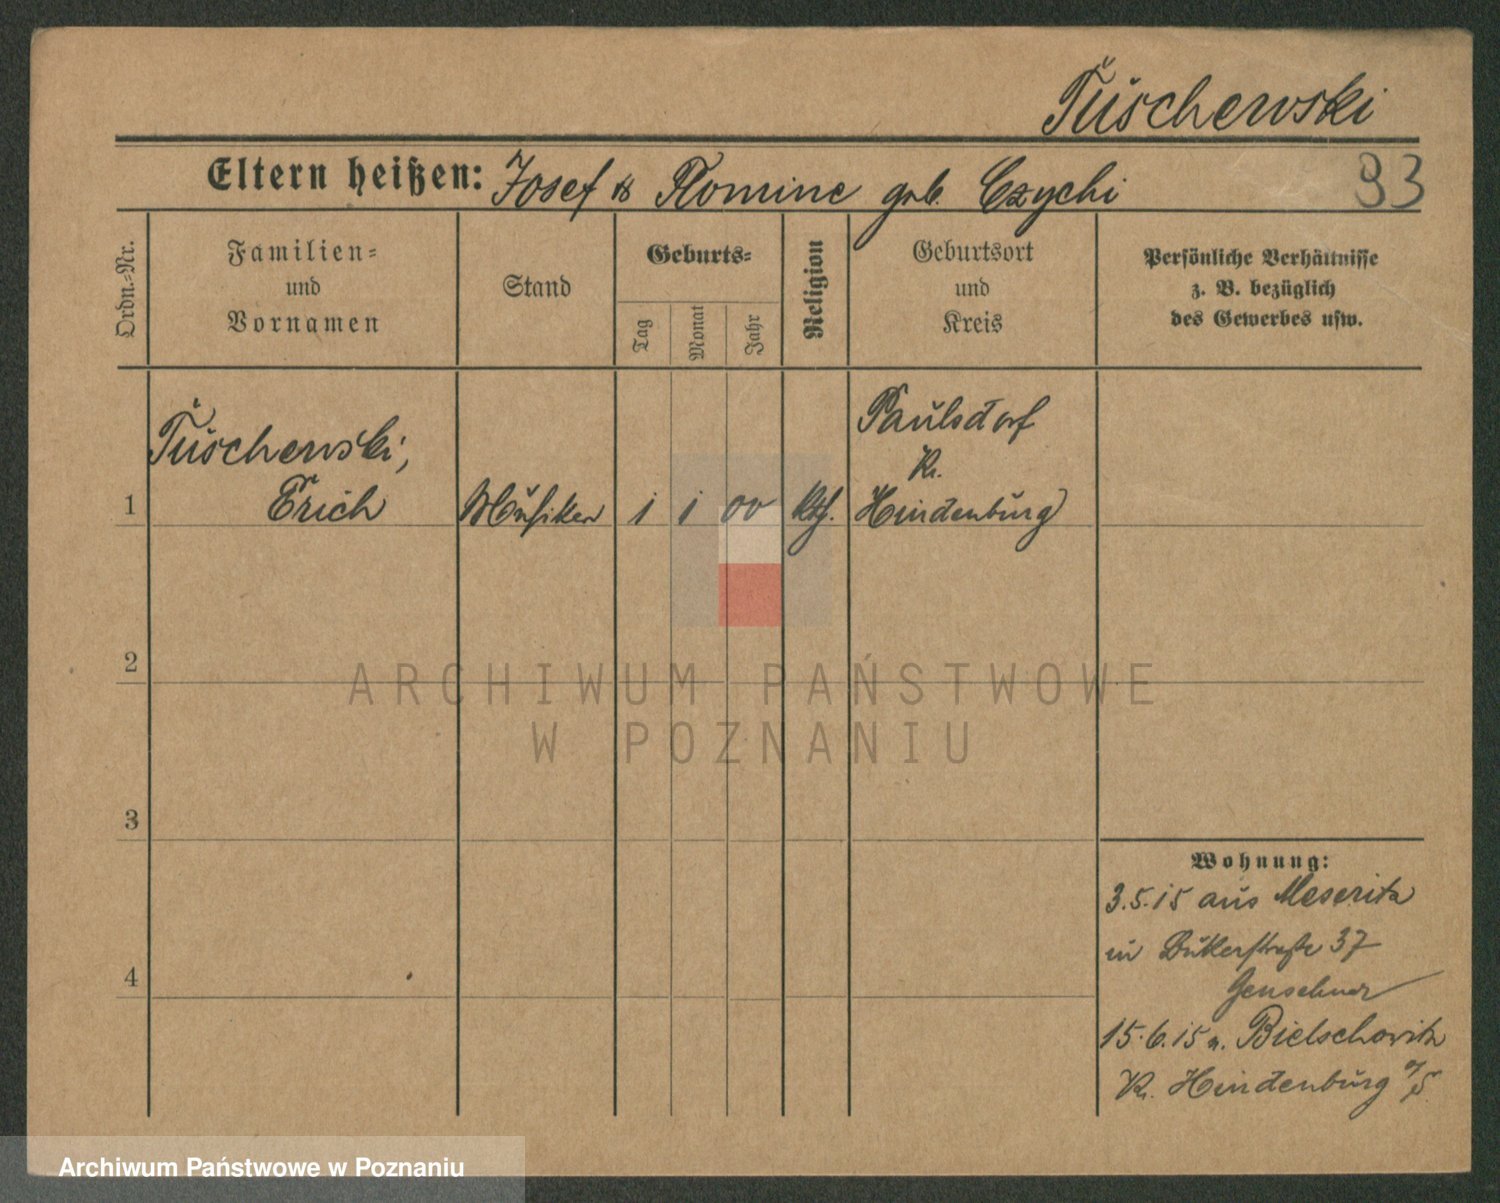 Tuschewski
Eltern heißen: Josef & Romine geb. Czychi
93
Ordn.=Nr.
Familien=
und
Vornamen
Stand
Geburts=
Tag
Monat
Jahr
Religion
Geburtsort
und
Kreis
Persönliche Verhältnisse
z. B. bezüglich
des Gewerbes usw.
1
Tuschewski,
Erich
Musiker
1
1
00
kth.
Paulsdorf
Kr.
Hindenburg
2
3
4
ARCHIWUM PAŃSTWOWE
W POZNANIU
Wohnung:
3.5.15 aus Meseritz
in 37
15.6.15 n. Bielschowitz
Kr. Hindenburg O/S.
Archiwum Państwowe w Poznaniu